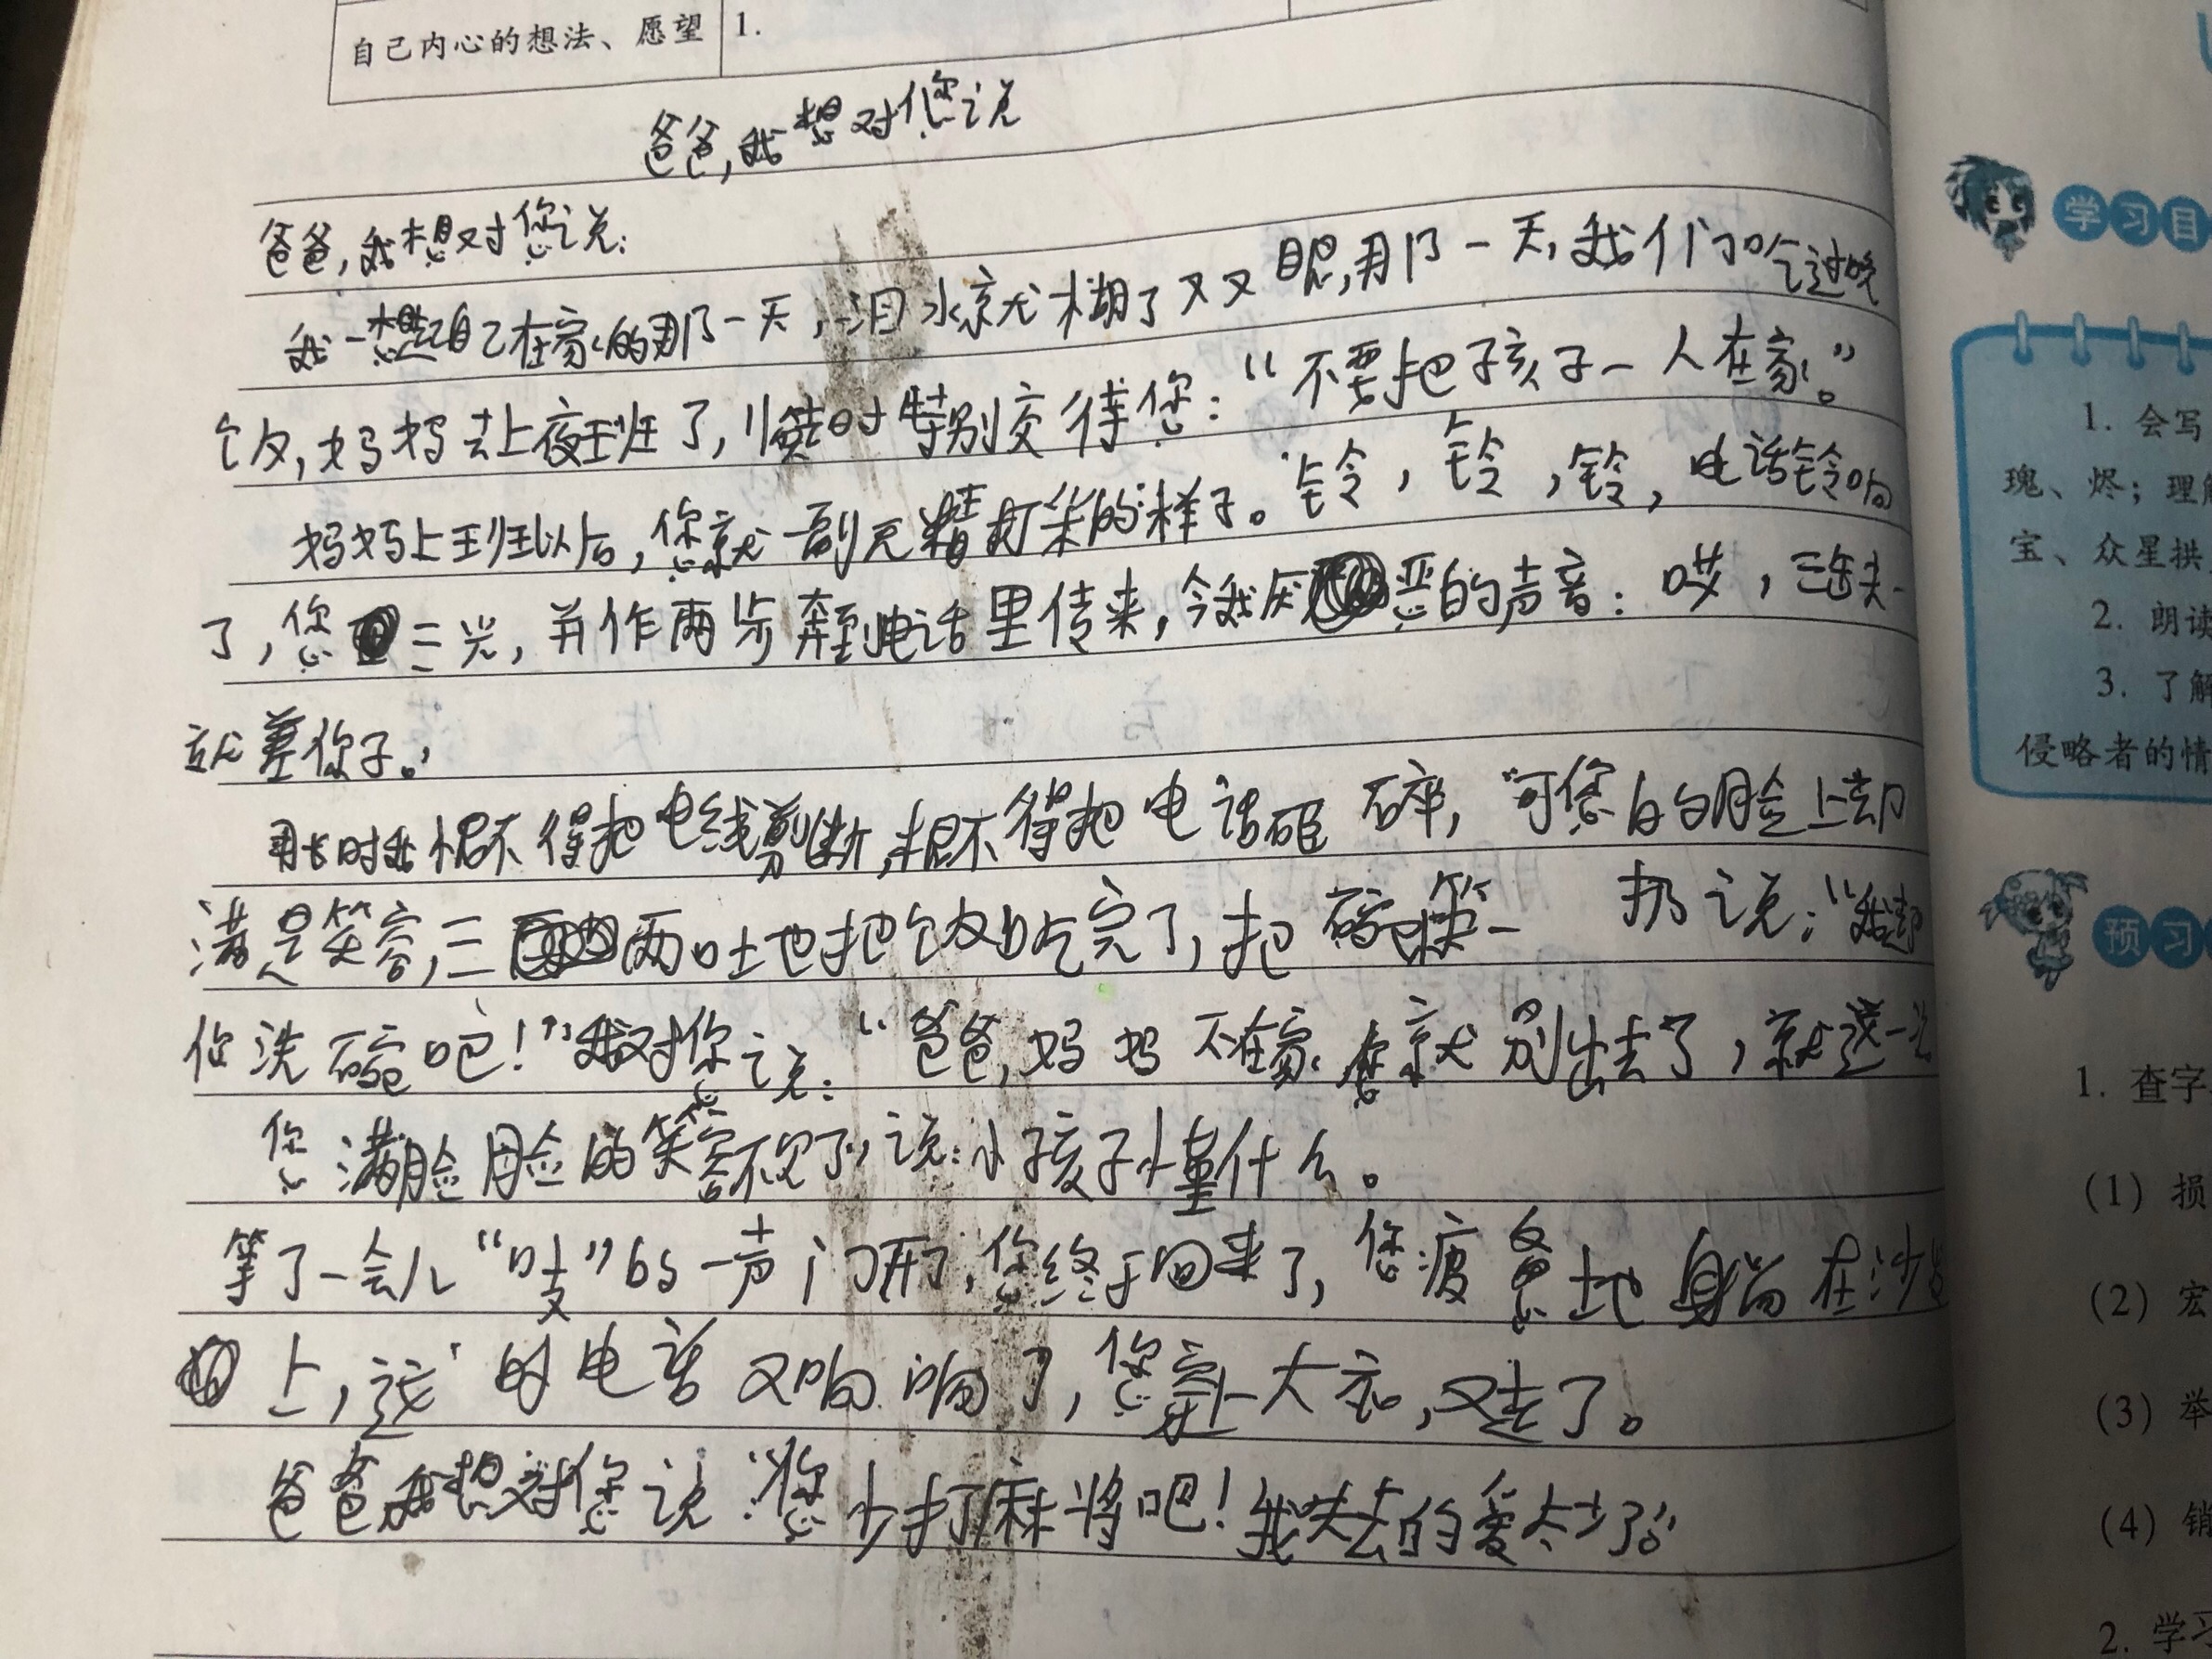 自己内心的想法、愿望 1.
爸爸,我想对您说
爸爸,我想对您说:
我一想起自己在家的那一天,泪水就糊了双眼,那一天,我们吃过晚
饭,妈妈去上夜班了,临走时特别交待您:“不要把孩子一人在家。”
妈妈上班以后,您就一副无精打采的样子。铃,铃,铃,电话铃响
了,您三步,并作两步奔到电话里传来,令我厌恶的声音:哎,三缺一
就差你了。”
那时我恨不得把电线剪断,恨不得把电话砸碎,可您的脸上却
满是笑容,三两口地把饭吃完了,把碗筷一扔说:“我走
你洗碗吧!”我对您说:“爸爸,妈妈不在家,您就别出去了,就这一次
您满脸脸的笑容不见了,说:小孩子懂什么。
等了一会儿“吱”的一声门开了,您终于回来了,您疲惫地躺在沙发
上,这时电话又响响了,您穿上大衣,又走了。
爸爸我想对您说:“您少打麻将吧!我失去的爱太少了。”
学习目
1. 会写
瑰、烬;理解
宝、众星拱
2. 朗读
3. 了解
侵略者的情
预习
1. 查字
(1) 损
(2) 宏
(3) 举
(4) 销
2. 学习